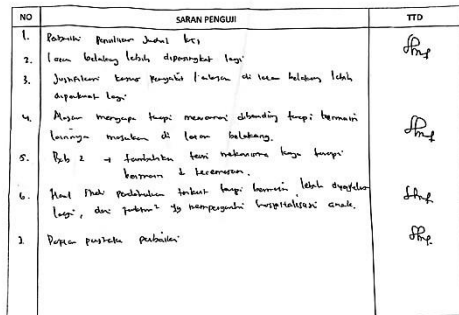 NO SARAN PENGUJI TTD
1. Perbaiki Penulisan Judul KTI
2. Latar belakang lebih dipersingkat lagi
3. Justifikasi kasus penyakit / alasan di latar belakang lebih
diperkuat lagi
4. Alasan mengapa terapi mewarnai dibanding terapi bermain
lainnya masukan di latar belakang.
5. Bab 2 → tambahkan teori mekanisme kerja terapi
bermain & kecemasan.
6. Hasil Studi Pendahuluan terkait terapi bermain lebih diperjelas
lagi, dan faktor² yg mempengaruhi hospitalisasi anak.
7. Daftar pustaka perbaiki